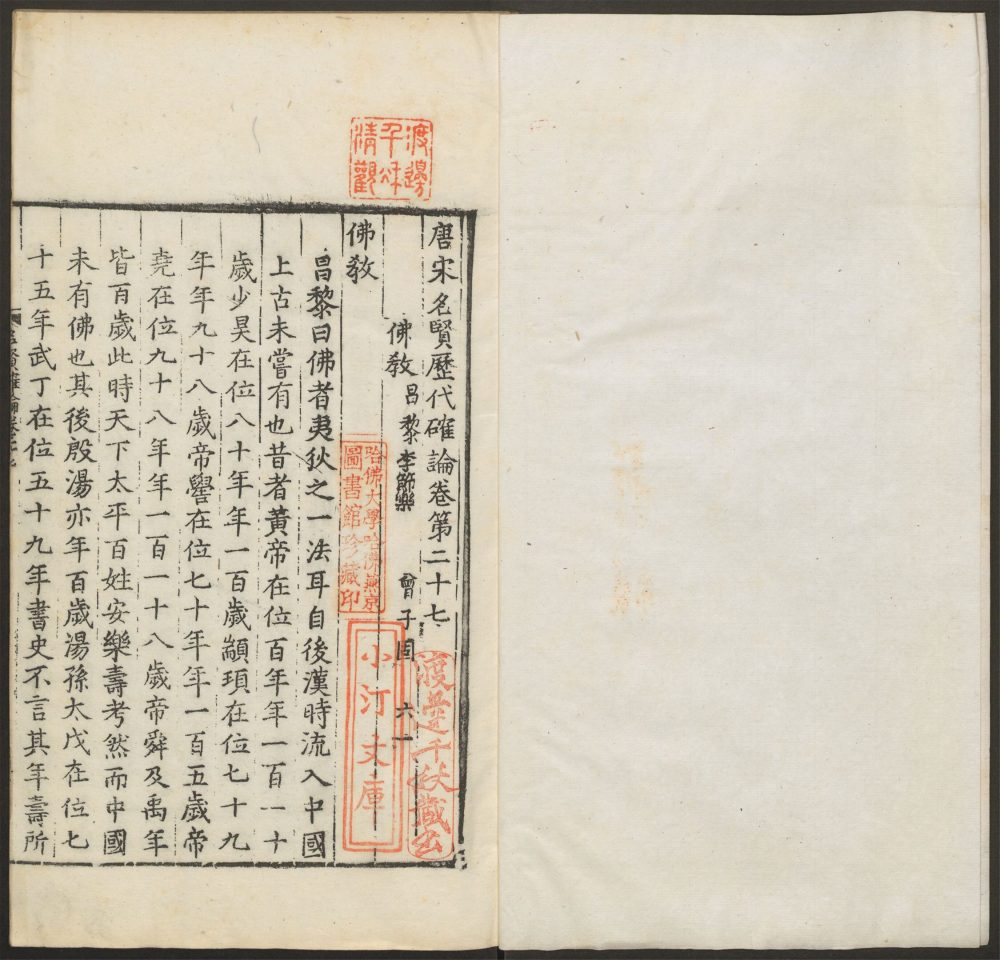 唐宋名賢歷代確論卷第二十七
佛教 昌黎 李節 樂 曾子固 六一
佛教
昌黎曰佛者夷狄之一法耳自後漢時流入中國
上古未嘗有也昔者黃帝在位百年年一百一十
歲少昊在位八十年年一百歲顓頊在位七十九
年年九十八歲帝嚳在位七十年年一百五歲帝
堯在位九十八年年一百一十八歲帝舜及禹年
皆百歲此時天下太平百姓安樂壽考然而中國
未有佛也其後殷湯亦年百歲湯孫太戊在位七
十五年武丁在位五十九年書史不言其年壽所
渡邊
千秋
清觀
哈佛大學哈佛燕京
圖書館珍藏印
小汀文庫
渡邊千秋藏